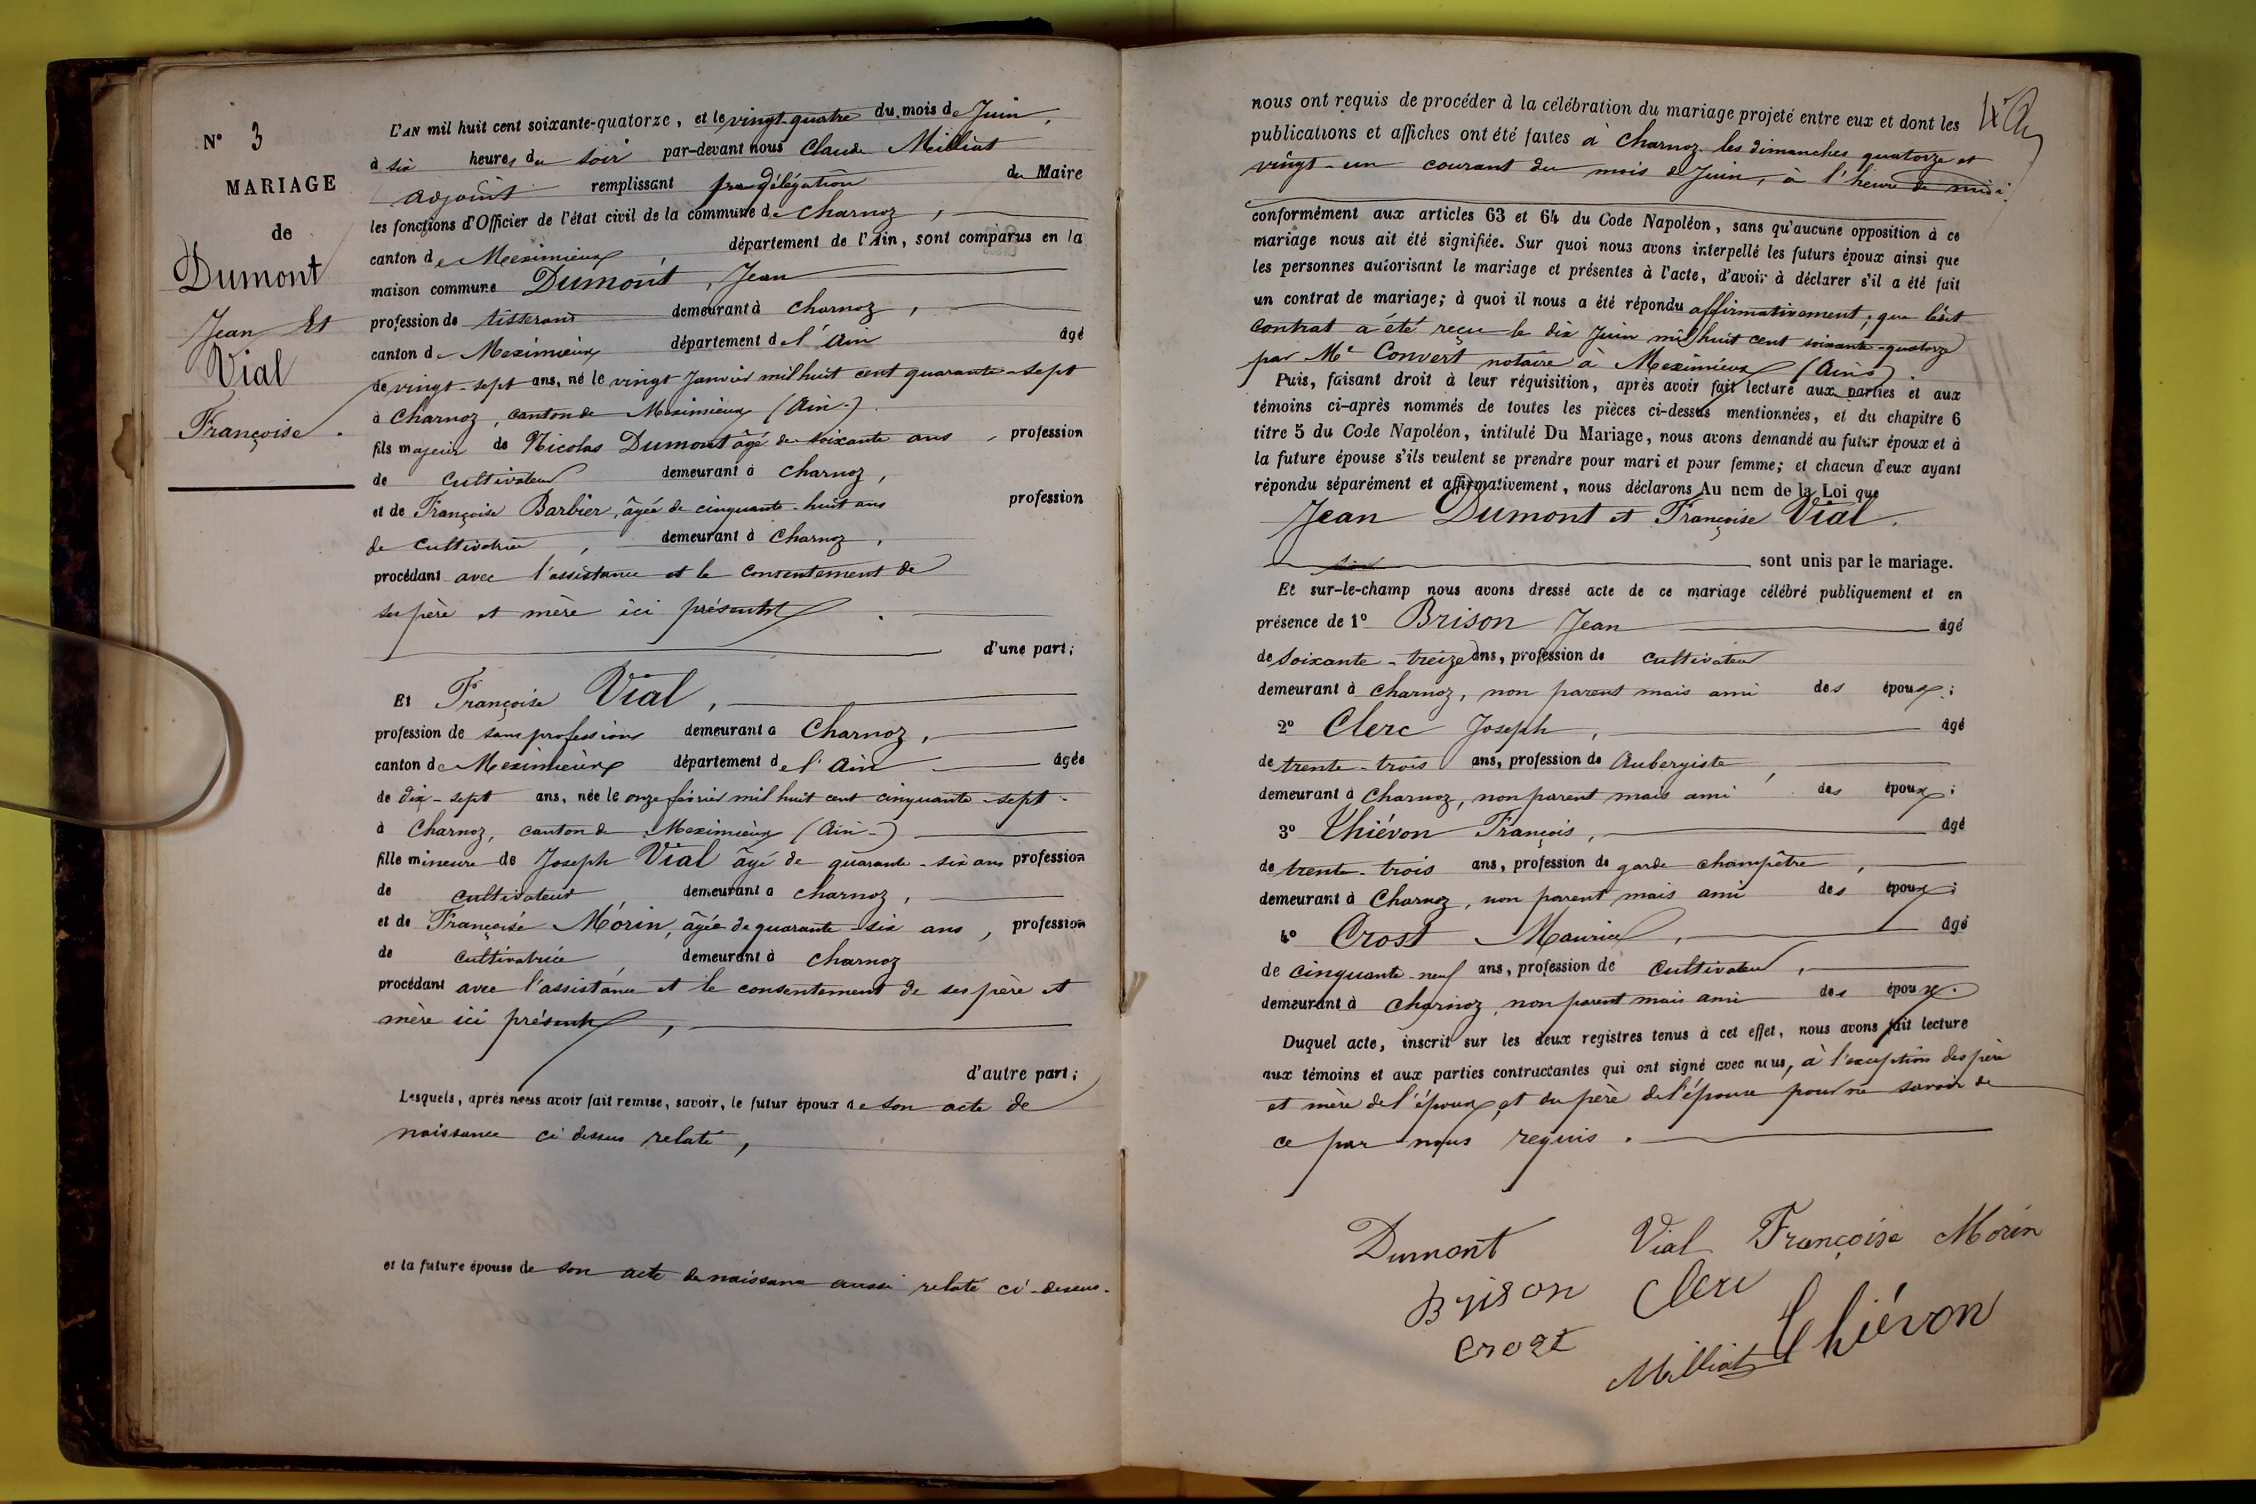 N° 3
MARIAGE
de
Dumont
Jean Et
Vial
Françoise.
L'AN mil huit cent soixante-quatorze, et le vingt-quatre du mois de Juin,
à six heures du soir par-devant nous Claude Milliat
adjoint remplissant par délégation du Maire
les fonctions d'Officier de l'état civil de la commune de Charnoz,
canton de Meximieux, département de l'Ain, sont comparus en la
maison commune Dumont, Jean
profession de tisserand demeurant à Charnoz,
canton de Meximieux département de l'Ain âgé
de vingt-sept ans, né le vingt Janvier mil huit cent quarante-sept
à Charnoz, canton de Meximieux (Ain-).
fils majeur de Nicolas Dumont âgé de soixante ans, profession
de cultivateur demeurant à Charnoz,
et de Françoise Barbier, âgée de cinquante-huit ans profession
de cultivatrice, demeurant à Charnoz,
procédant avec l'assistance et le consentement de
ses père et mère ici présents.
d'une part;
Et Françoise Vial,
profession de sans profession demeurant à Charnoz,
canton de Meximieux département de l'Ain âgée
de dix-sept ans, née le onze février mil huit cent cinquante-sept-
à Charnoz, canton de Meximieux (Ain-)
fille mineure de Joseph Vial âgé de quarante-six ans profession
de cultivateur demeurant à Charnoz,
et de Françoise Morin, âgée de quarante-six ans, profession
de cultivatrice demeurant à Charnoz
procédant avec l'assistance et le consentement de ses père et
mère ici présents,
d'autre part;
Lesquels, après nous avoir fait remise, savoir, le futur époux de son acte de
naissance ci dessus relaté,
et la future épouse de son acte de naissance aussi relaté ci-dessus.
nous ont requis de procéder à la célébration du mariage projeté entre eux et dont les
publications et affiches ont été faites à Charnoz les dimanches quatorze et
vingt-un courant du mois de Juin, à l'heure de midi.
conformément aux articles 63 et 64 du Code Napoléon, sans qu'aucune opposition à ce
mariage nous ait été signifiée. Sur quoi nous avons interpellé les futurs époux ainsi que
les personnes autorisant le mariage et présentes à l'acte, d'avoir à déclarer s'il a été fait
un contrat de mariage; à quoi il nous a été répondu affirmativement; que ledit
contrat a été reçu le dix Juin mil huit cent soixante-quatorze
par Me Convert notaire à Meximieux (Ain).
Puis, faisant droit à leur réquisition, après avoir fait lecture aux parties et aux
témoins ci-après nommés de toutes les pièces ci-dessus mentionnées, et du chapitre 6
titre 5 du Code Napoléon, intitulé Du Mariage, nous avons demandé au futur époux et à
la future épouse s'ils veulent se prendre pour mari et pour femme; et chacun d'eux ayant
répondu séparément et affirmativement, nous déclarons Au nom de la Loi que
Jean Dumont et Françoise Vial.
sont unis par le mariage.
Et sur-le-champ nous avons dressé acte de ce mariage célébré publiquement et en
présence de 1° Brison Jean âgé
de soixante-treize ans, profession de cultivateur
demeurant à Charnoz, non parent mais ami des époux;
2° Clerc Joseph, âgé
de trente-trois ans, profession de Aubergiste,
demeurant à Charnoz, non parent mais ami des époux;
3° Thiévon François, âgé
de trente-trois ans, profession de garde champêtre,
demeurant à Charnoz, non parent mais ami des époux;
4° Crost Maurice, âgé
de cinquante-neuf ans, profession de cultivateur,
demeurant à Charnoz, non parent mais ami des époux.
Duquel acte, inscrit sur les deux registres tenus à cet effet, nous avons fait lecture
aux témoins et aux parties contractantes qui ont signé avec nous, à l'exception des père
et mère de l'époux, et du père de l'épouse pour ne savoir de
ce par nous requis.
Dumont Vial Françoise Morin
Brison Clerc
Crozt Milliat Thiévon